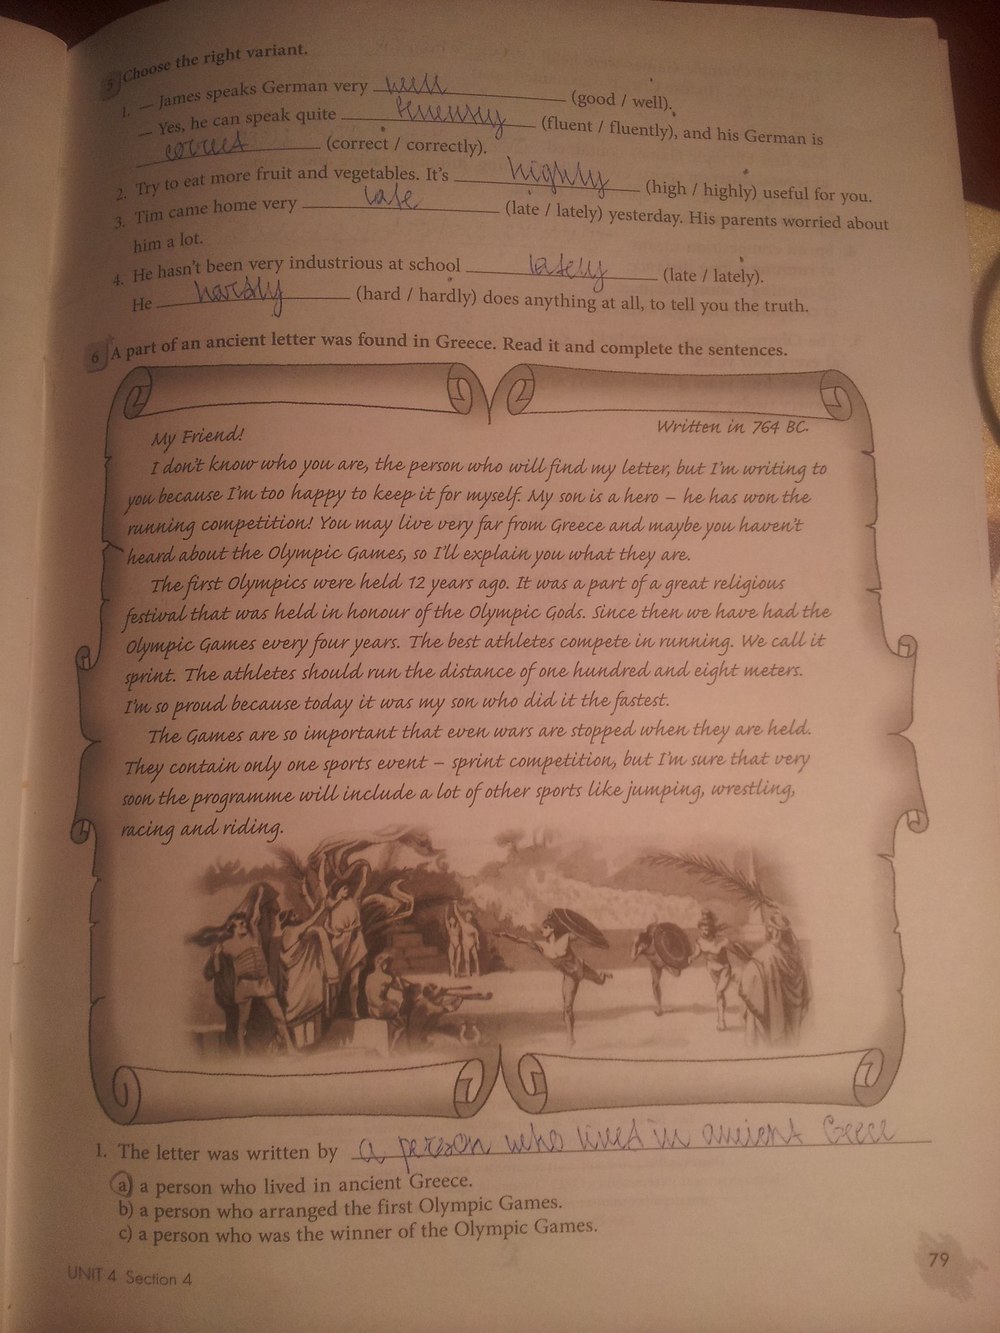 5 Choose the right variant.
1. — James speaks German very well (good / well).
— Yes, he can speak quite fluently (fluent / fluently), and his German is
correct (correct / correctly).
2. Try to eat more fruit and vegetables. It's highly (high / highly) useful for you.
3. Tim came home very late (late / lately) yesterday. His parents worried about
him a lot.
4. He hasn't been very industrious at school lately (late / lately).
He hardly (hard / hardly) does anything at all, to tell you the truth.
6 A part of an ancient letter was found in Greece. Read it and complete the sentences.
Written in 764 BC.
My Friend!
I don't know who you are, the person who will find my letter, but I'm writing to
you because I'm too happy to keep it for myself. My son is a hero – he has won the
running competition! You may live very far from Greece and maybe you haven't
heard about the Olympic Games, so I'll explain you what they are.
The first Olympics were held 12 years ago. It was a part of a great religious
festival that was held in honour of the Olympic Gods. Since then we have had the
Olympic Games every four years. The best athletes compete in running. We call it
sprint. The athletes should run the distance of one hundred and eight meters.
I'm so proud because today it was my son who did it the fastest.
The Games are so important that even wars are stopped when they are held.
They contain only one sports event – sprint competition, but I'm sure that very
soon the programme will include a lot of other sports like jumping, wrestling,
racing and riding.
1. The letter was written by a person who lived in ancient Geece
a) a person who lived in ancient Greece.
b) a person who arranged the first Olympic Games.
c) a person who was the winner of the Olympic Games.
UNIT 4 Section 4
79